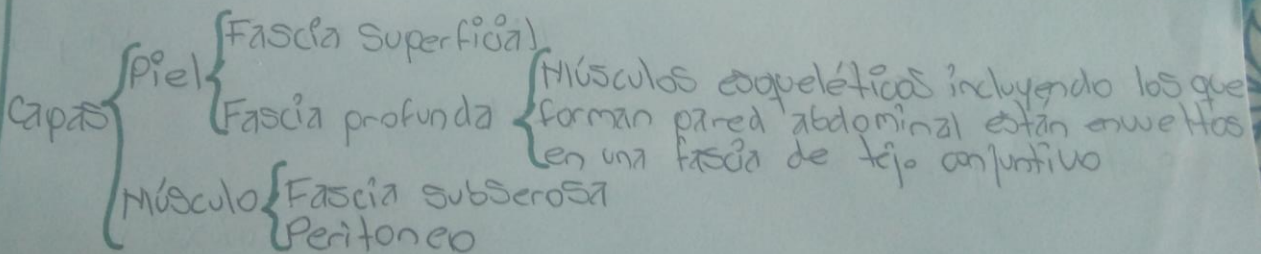 Capas
Piel
Fascia Superficial
Fascia profunda
Músculos esqueléticos incluyendo los que
forman pared abdominal están envueltos
en una fascia de tejo conjuntivo
Músculo
Fascia subserosa
Peritoneo